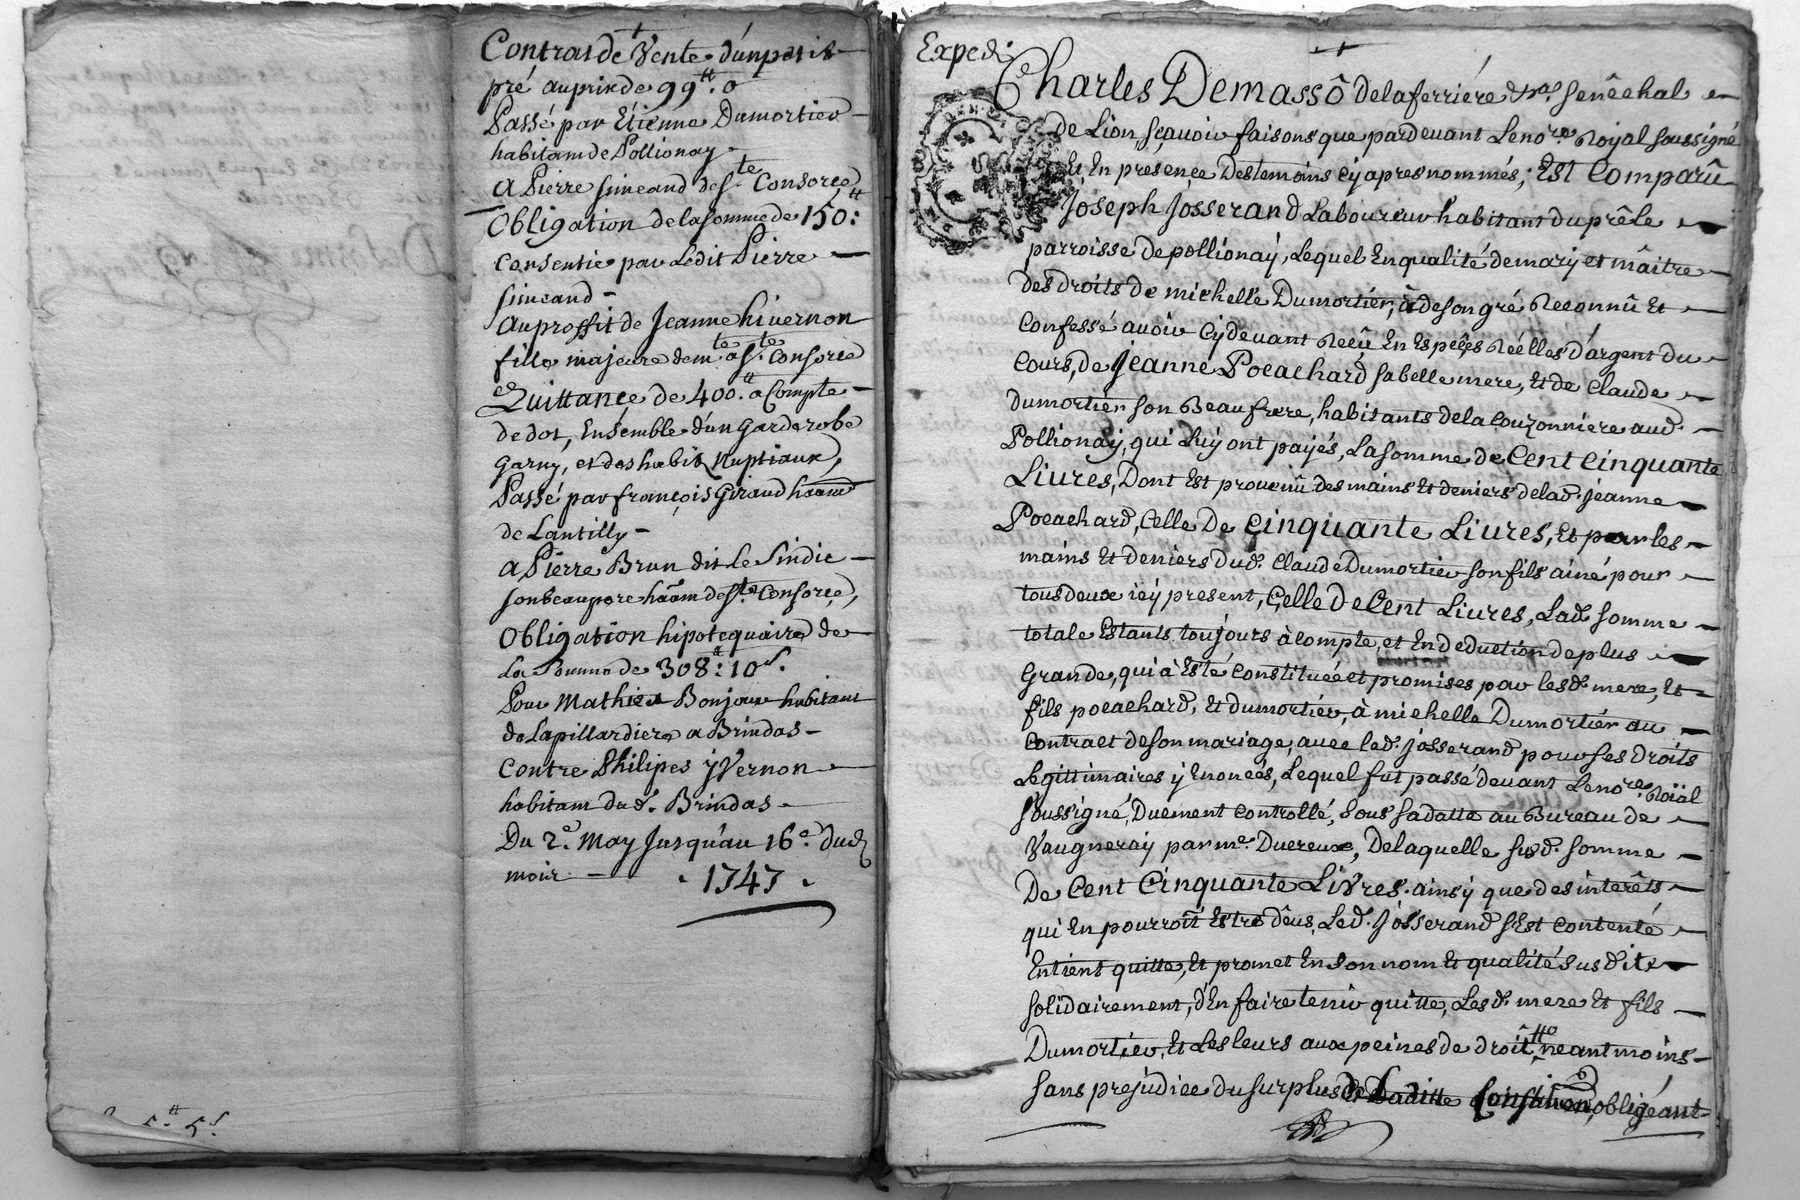 Contrat de Vente d'un petit
pré au prix de 99tt. 0
Passé par Etienne Dumortier
habitant de Pollionay
A Pierre simeand de Ste Consorce
Obligation de la somme de 150tt:
Consentie par Ledit Pierre
simeand
Au proffit de Jeanne hivernon
fille majeure de mte a Ste Consorce
Quittance de 400tt. a Compte
de dot, Ensemble d'un Garderobe
Garny, et des habits Nuptiaux,
Passé par françois Giraud haânt
de Lantilly
A Pierre Brun dit le Sindic
son beaupere haânt de Ste Consorce,
Obligation hipotequaire de
La Somme de 308tt: 10s.
Pour Mathieu Bonjour habitant
de Lapillardiere a Brindas
Contre Philipes yVernon
habitant dud. Brindas
Du 2e. May Jusqu'au 16e. dud
mois 1747
5tt. 5s
Exped:
Charles Demassô delaferriére &ras. senêchal
de Lion, sçavoir faisons que pardevant Le nore. Royal soussigné
Et En présence Des temoins cy apres nommés; Est Comparû
Joseph Josserand Laboureur habitant du prêle
parroisse de pollionaÿ, Lequel En qualité de marÿ et mâitre
des droits de michelle Dumortier, à de son gré Reconnû Et
Confessé avoir Cÿdevant Reçû En Espéçes Réelles d'argent du
Cours, de Jeanne Pocachard sa belle mere, Et de Claude
Dumortiér son Beaufrere, habitants de la Couzonniere aud.
Pollionaÿ, qui Luÿ ont payés, La somme de Cent Cinquante
Livres, Dont Est provenû des mains Et deniers de lad. Jeanne
Pocachard, Celle De Cinquante Livres, Et par les
mains Et deniers dud. Claude Dumortier son fils ainé pour
tous deux icÿ present, Celle De Cent Livres, Lad. somme
totale Estants toujours à compte, et En deduction de plus
Grande, qui à Esté Constituée et promises par lesd. mere, Et
fils pocachard, Et dumortiér, à michelle Dumortiér au
Contract de son mariage, avec led. Josserand pour ses Droits
Légittimaires ÿ Enoncés, Lequel fut passé devant Le nore. Roïal
soussigné, Duement Controllé, Sous sa datte au Bureau de
Vaugneraÿ par me. Ducreux, De laquelle susd. somme
De Cent Cinquante Livres. ainsÿ que des interêts
qui En pourroît Estre dêus, Led. Josserand s'Est Contenté
En tient quitte, Et promet En son nom Et qualité susdite
solidairement, d'En faire tenir quitte, Lesd. mere Et fils
Dumortier, Et Les leurs aux peines de droit, neantmoins
sans prejudice du surplus de Laditte Constitution, obligéant